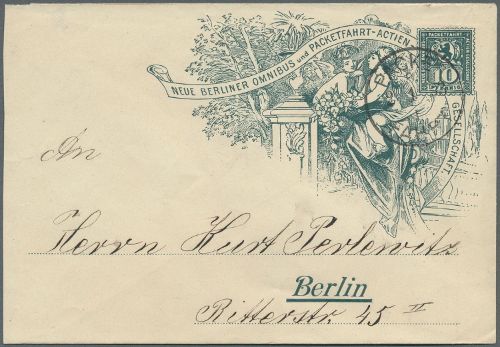 NEUE BERLINER OMNIBUS und PACKETFAHRT-ACTIEN
GESELLSCHAFT.
PACKETFAHRT
10
An
Herrn Kurt Perlewitz
Berlin
Ritterstr. 45 II